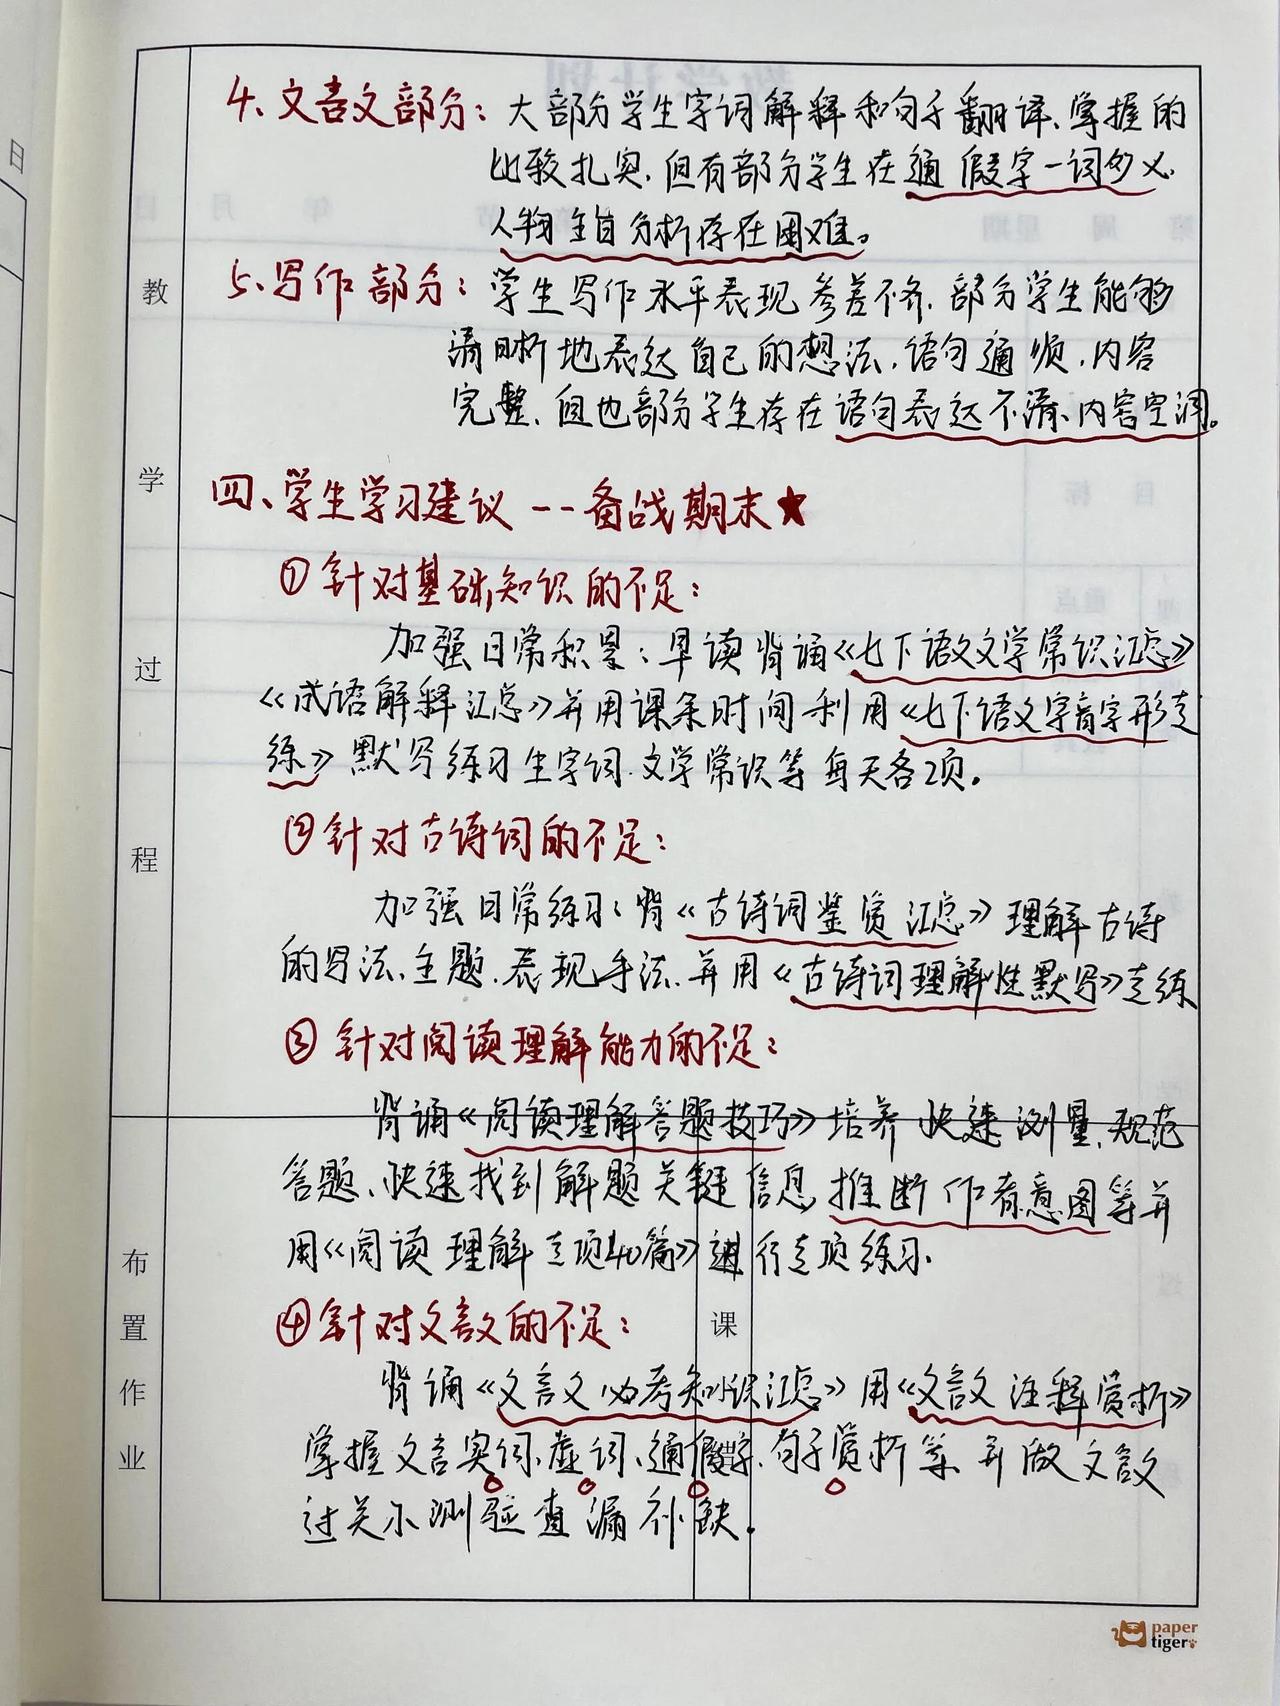 日
教
学
过
程
4、文言文部分：大部分学生字词解释和句子翻译、掌握的
比较扎实，但有部分学生在通假字一词多义、
人物 分析存在困难。
5、写作部分：学生写作水平表现参差不齐，部分学生能够
清晰地表达自己的想法，语句通顺，内容
完整，但也部分学生存在语句表达不清、内容空洞。
四、学生学习建议--备战期末★
①针对基础知识的不足：
加强日常积累：早读背诵《七下语文文学常识汇总》
《成语解释汇总》并用课余时间利用《七下语文字音字形专
练》默写练习生字词、文学常识等每天各2项。
②针对古诗词的不足：
加强日常练习：背《古诗词鉴赏汇总》理解古诗
的写法、主题、表现手法，并用《古诗词理解性默写》专练
③针对阅读理解能力的不足：
背诵《阅读理解答题技巧》培养快速测量、规范
答题、快速找到解题关键信息，推断作者意图等并
用《阅读理解专项40篇》进行专项练习。
④针对文言文的不足：
背诵《文言文必考知识汇总》用《文言文注释赏析》
掌握文言实词、虚词、通假字、句子赏析等，并做文言文
过关小测验查漏补缺。
布
置
作
业
课
paper
tiger